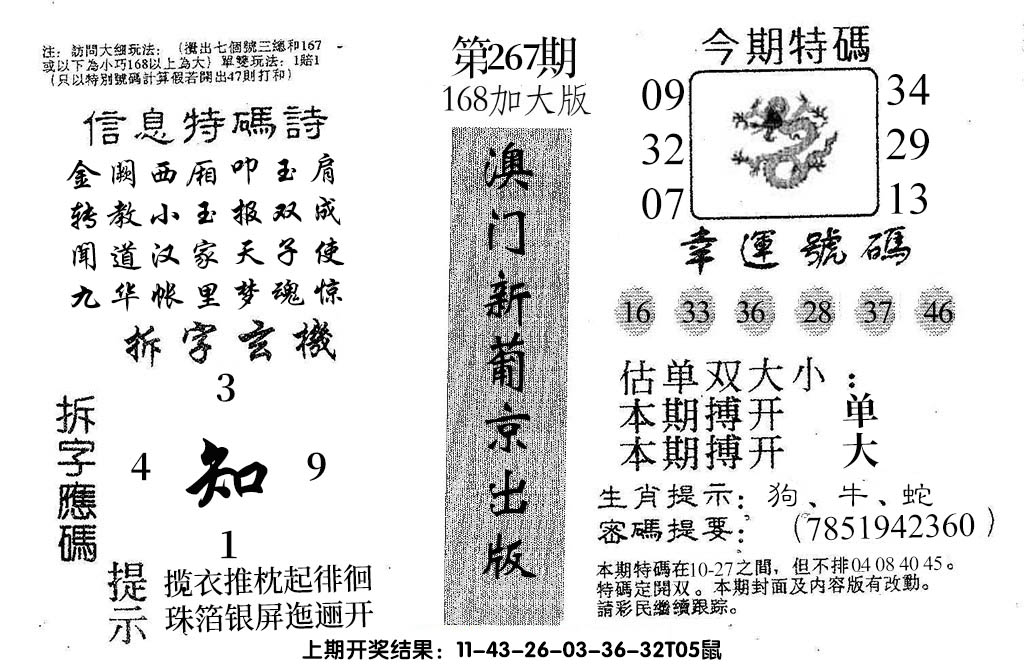 注：訪問大細玩法：（攪出七個號三總和167
或以下為小巧168以上為大）單雙玩法：1賠1
（只以特別號碼計算假若開出47則打和）
信息特碼詩
金阙西厢叩玉肩
转教小玉报双成
闻道汉家天子使
九华帐里梦魂惊
拆字玄機
3
4 知 9
1
拆字應碼
提示
揽衣推枕起徘徊
珠箔银屏迤逦开
第267期
168加大版
澳门新葡京出版
今期特碼
09 34
32 29
07 13
幸運號碼
16 33 36 28 37 46
估单双大小：
本期搏开 单
本期搏开 大
生肖提示：狗、牛、蛇
密碼提要：（7851942360）
本期特碼在10-27之間，但不排04 08 40 45。
特碼定開双。本期封面及内容版有改動。
請彩民繼續跟踪。
上期开奖结果：11-43-26-03-36-32T05鼠